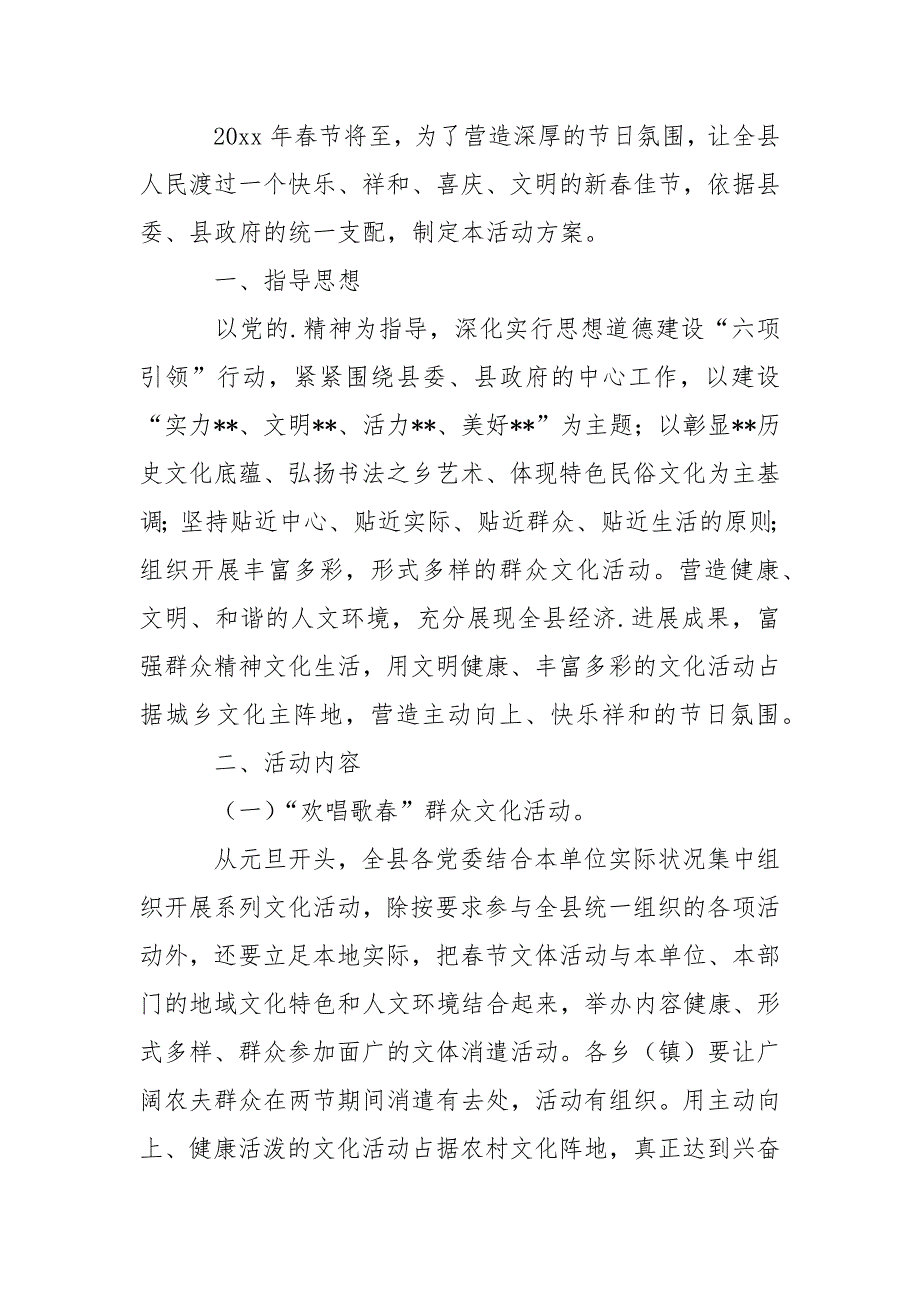 20xx 年春节将至，为了营造深厚的节日氛围，让全县
人民渡过一个快乐、祥和、喜庆、文明的新春佳节，依据县
委、县政府的统一支配，制定本活动方案。
一、指导思想
以党的.精神为指导，深化实行思想道德建设“六项
引领”行动，紧紧围绕县委、县政府的中心工作，以建设
“实力**、文明**、活力**、美好**”为主题；以彰显**历
史文化底蕴、弘扬书法之乡艺术、体现特色民俗文化为主基
调；坚持贴近中心、贴近实际、贴近群众、贴近生活的原则；
组织开展丰富多彩，形式多样的群众文化活动。营造健康、
文明、和谐的人文环境，充分展现全县经济.进展成果，富
强群众精神文化生活，用文明健康、丰富多彩的文化活动占
据城乡文化主阵地，营造主动向上、快乐祥和的节日氛围。
二、活动内容
（一）“欢唱歌春”群众文化活动。
从元旦开头，全县各党委结合本单位实际状况集中组
织开展系列文化活动，除按要求参与全县统一组织的各项活
动外，还要立足本地实际，把春节文体活动与本单位、本部
门的地域文化特色和人文环境结合起来，举办内容健康、形
式多样、群众参加面广的文体消遣活动。各乡（镇）要让广
阔农夫群众在两节期间消遣有去处，活动有组织。用主动向
上、健康活泼的文化活动占据农村文化阵地，真正达到兴奋